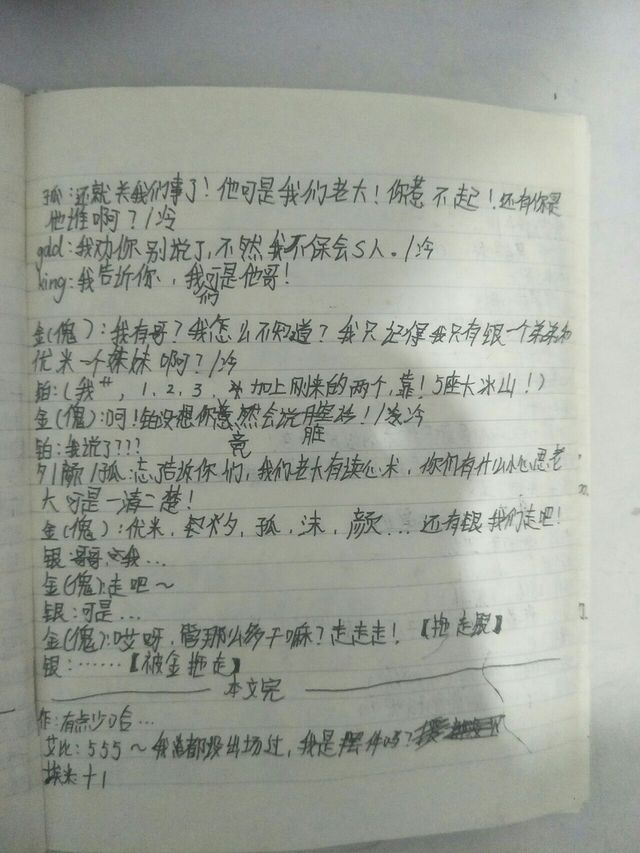 孤:还就关我们事了!他可是我们老大!你惹不起!还有你是
他谁啊?/冷
gold:我劝你别说了,不然我不保会S人。/冷
king:我告诉你,我们可是他哥!
金(傀):我有哥?我怎么不知道?我只记得我只有银一个弟弟和
优米一个妹妹啊?/冷
铂:(我艹,1,2,3,加上刚来的两个,靠!5座大冰山!)
金(傀):呵!铂没想你竟然会说脏话!/冷冷
铂:我说了???
夕/颜/孤:忘了告诉你们,我们老大有读心术,你们有什么小心思老
大可是一清二楚!
金(傀):优米,夕,孤,沫,颜...还有银我们走吧!
银:哥哥,我...
金(傀):走吧~
银:可是...
金(傀):哎呀,管那么多干嘛?走走走!【拖走银】
银:……【被金拖走】
本文完
作:有点少哈...
艾比:555~我都没出场过,我是摆件吗?
埃米+1